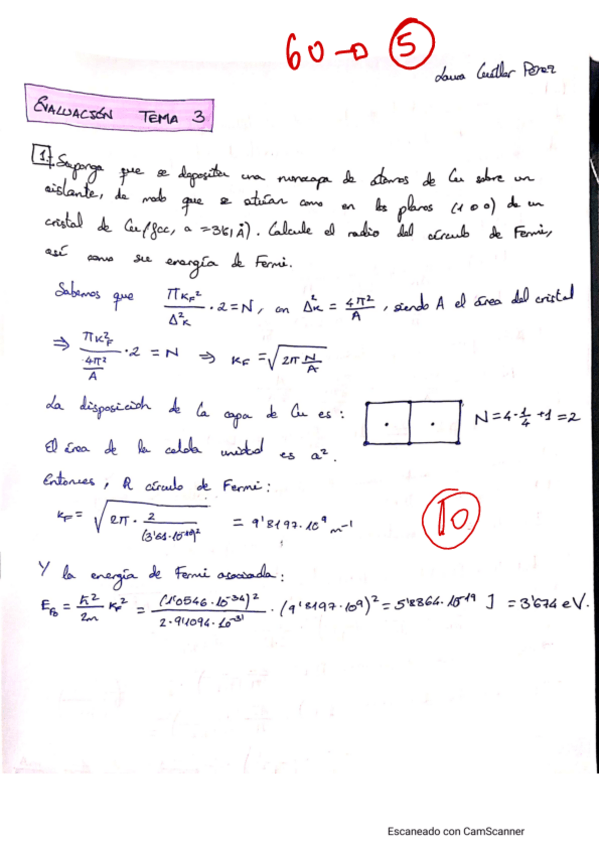 60 → 5
Laura Cuéllar Pérez
EVALUACIÓN TEMA 3
1. Suponga que se deposita una monocapa de átomos de Cu sobre un
aislante, de modo que se sitúan como en los planos (100) de un
cristal de Cu (fcc, a = 3'61 Å). Calcule el radio del círculo de Fermi,
así como su energía de Fermi.
Sabemos que πK_F²/Δ²_K · 2 = N, con Δ²_K = 4π²/A, siendo A el área del cristal
⇒ πK²_F/(4π²/A) · 2 = N ⇒ K_F = √(2π N/A)
La disposición de la capa de Cu es: N = 4·1/4 + 1 = 2
El área de la celda unidad es a².
Entonces, R círculo de Fermi:
K_F = √(2π · 2/(3'61·10⁻¹⁰)²) = 9'8197·10⁹ m⁻¹
10
Y la energía de Fermi asociada:
E_F0 = ħ²/2m K_F² = (1'0546·10⁻³⁴)²/(2·9'1094·10⁻³¹) · (9'8197·10⁹)² = 5'8864·10⁻¹⁹ J = 3'674 eV.
Escaneado con CamScanner